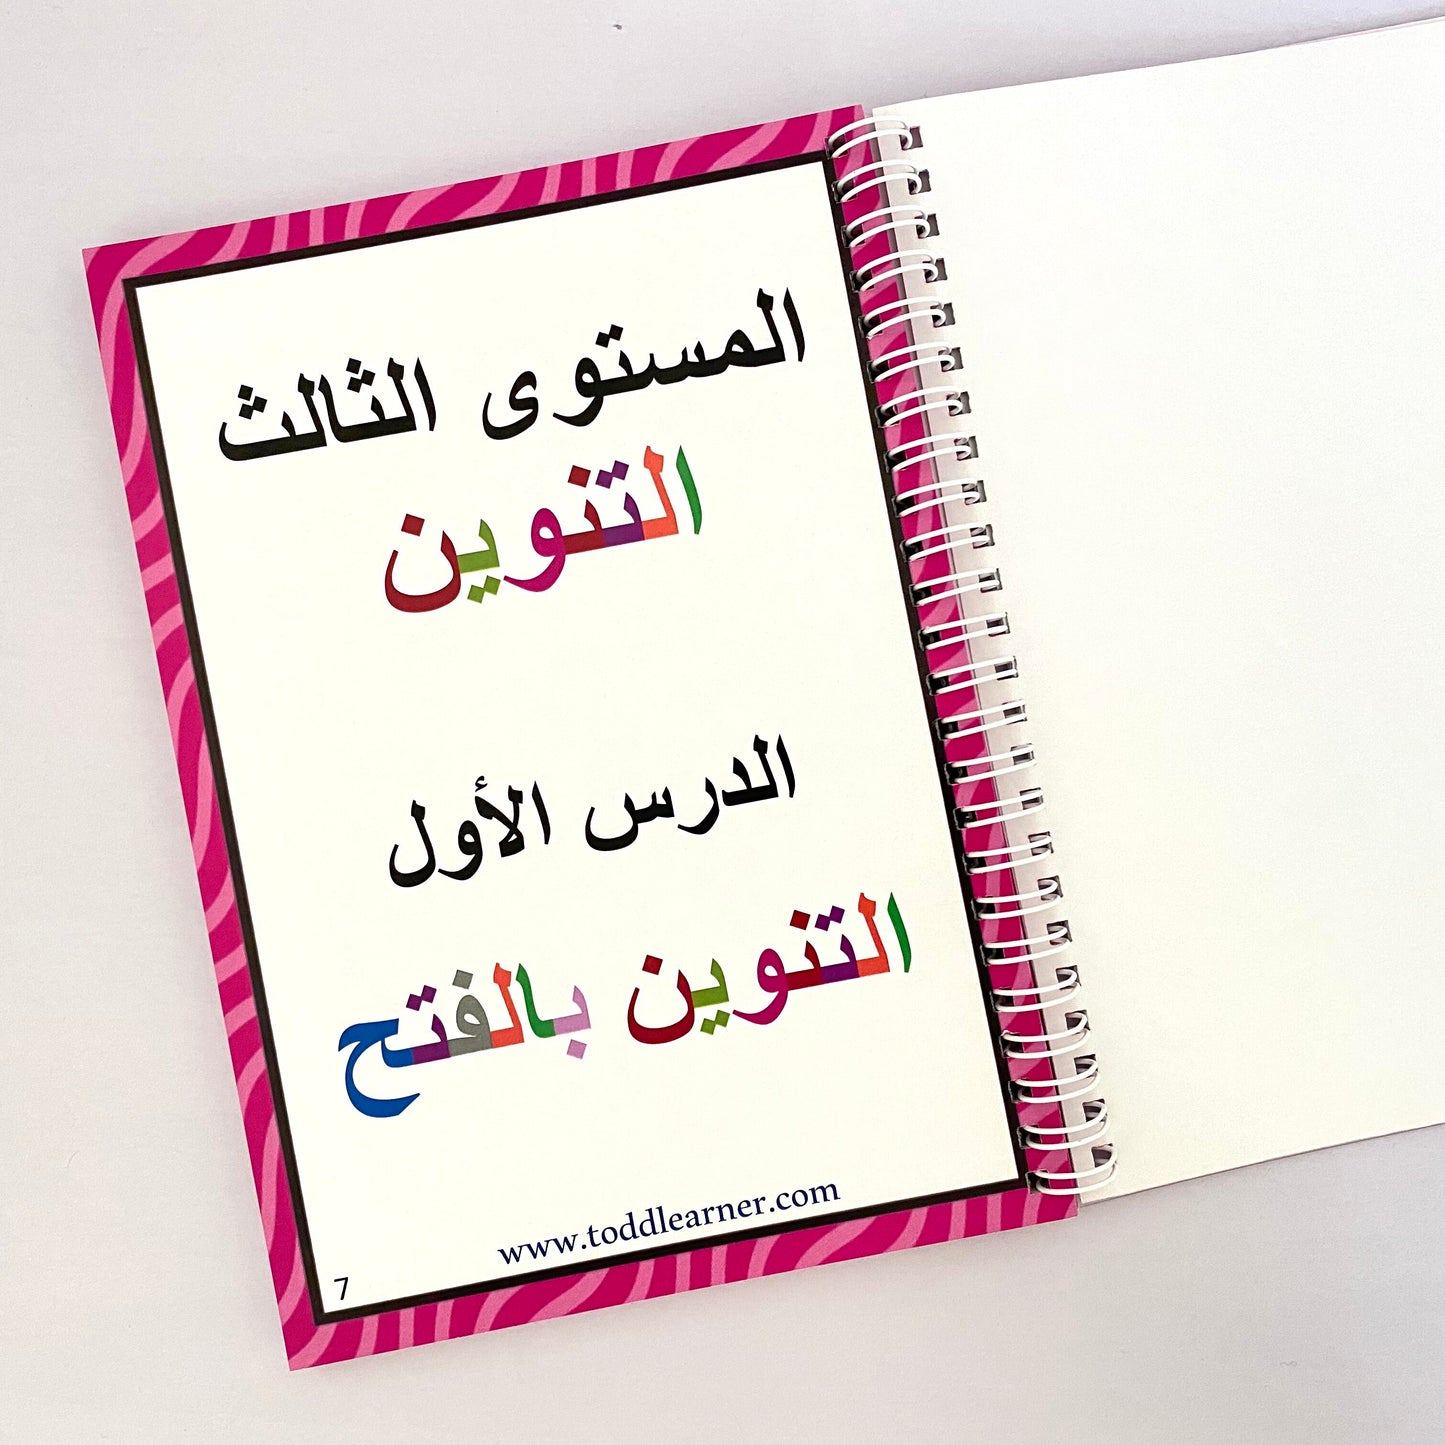 المستوى الثالث
التنوين
الدرس الأول
التنوين بالفتح
www.toddlearner.com
7